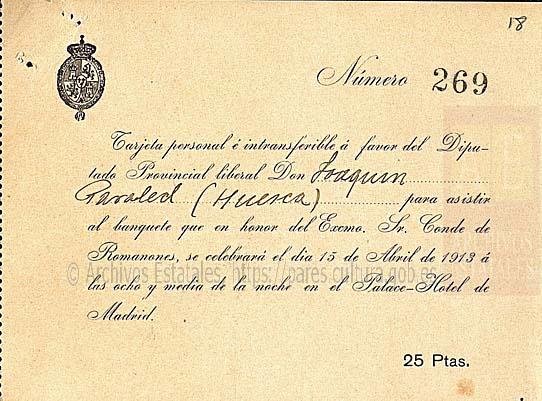 18
Número 269
Tarjeta personal é intransferible á favor del Dipu-
tado Provincial liberal Don Joaquin
(Huesca) para asistir
al banquete que en honor del Excmo. Sr. Conde de
Romanones, se celebrará el dia 15 de Abril de 1913 á
© Archivos Estatales, https://pares.cultura.gob.es
las ocho y media de la noche en el Palace-Hotel de
Madrid.
25 Ptas.